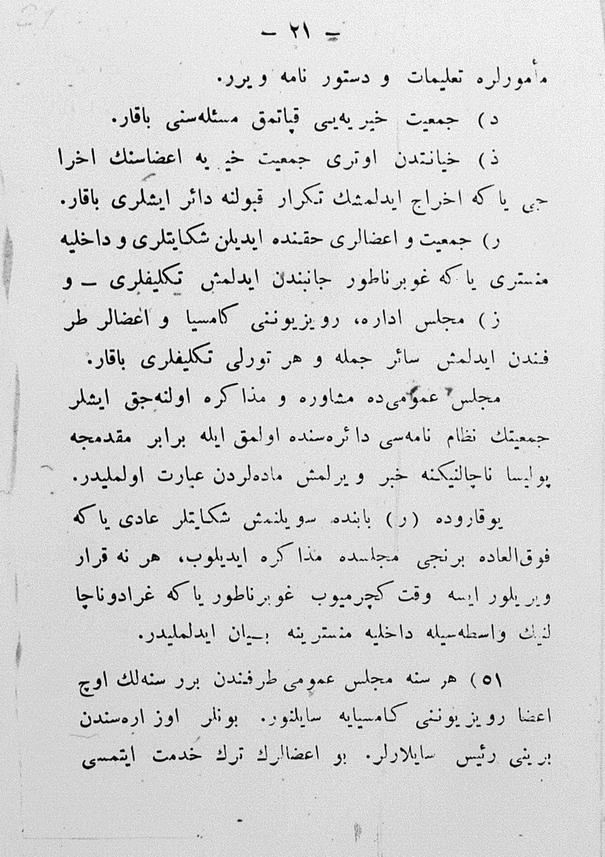 – ٢١ –
مأمورلره تعلیمات و دستور نامه ویرر.
د) جمعیت خیریه‌یی قپاتمق مسئله‌سنی باقار.
ذ) خیانتدن اوتری جمعیت خیریه اعضاسنك اخرا
جی یا که اخراج ایدلمشك تکرار قبولنه دائر ایشلری باقار.
ر) جمعیت و اعضالری حقنده ایدیلن شکایتلری و داخلیه
منستری یا که غوبرناطور جانبندن ایدلمش تکلیفلری – و
ز) مجلس اداره، رویزیوننی کامسیا و اعضالر طر
فندن ایدلمش سائر جمله و هر تورلی تکلیفلری باقار.
مجلس عمومی‌ده مشاوره و مذاکره اولنه‌جق ایشلر
جمعیتك نظام نامه‌سی دائره‌سنده اولمق ایله برابر مقدمجه
پولیسا ناچالنیکنه خبر ویرلمش ماده‌لردن عبارت اولملیدر.
یوقاروده (ر) بابنده سویلنمش شکایتلر عادی یا که
فوق‌العاده برنجی مجلسده مذاکره ایدیلوب، هر نه قرار
ویریلور ایسه وقت کچرمیوب غوبرناطور یا که غرادوناچا
لنیك واسطه‌سیله داخلیه منسترینه بیان ایدلملیدر.
٥١) هر سنه مجلس عمومی طرفندن برر سنه‌لك اوچ
اعضا رویزیوننی کامسیایه سایلنور. بونلر اوز اره‌سندن
برینی رئیس سایلارلر. بو اعضالرك ترك خدمت ایتمسی